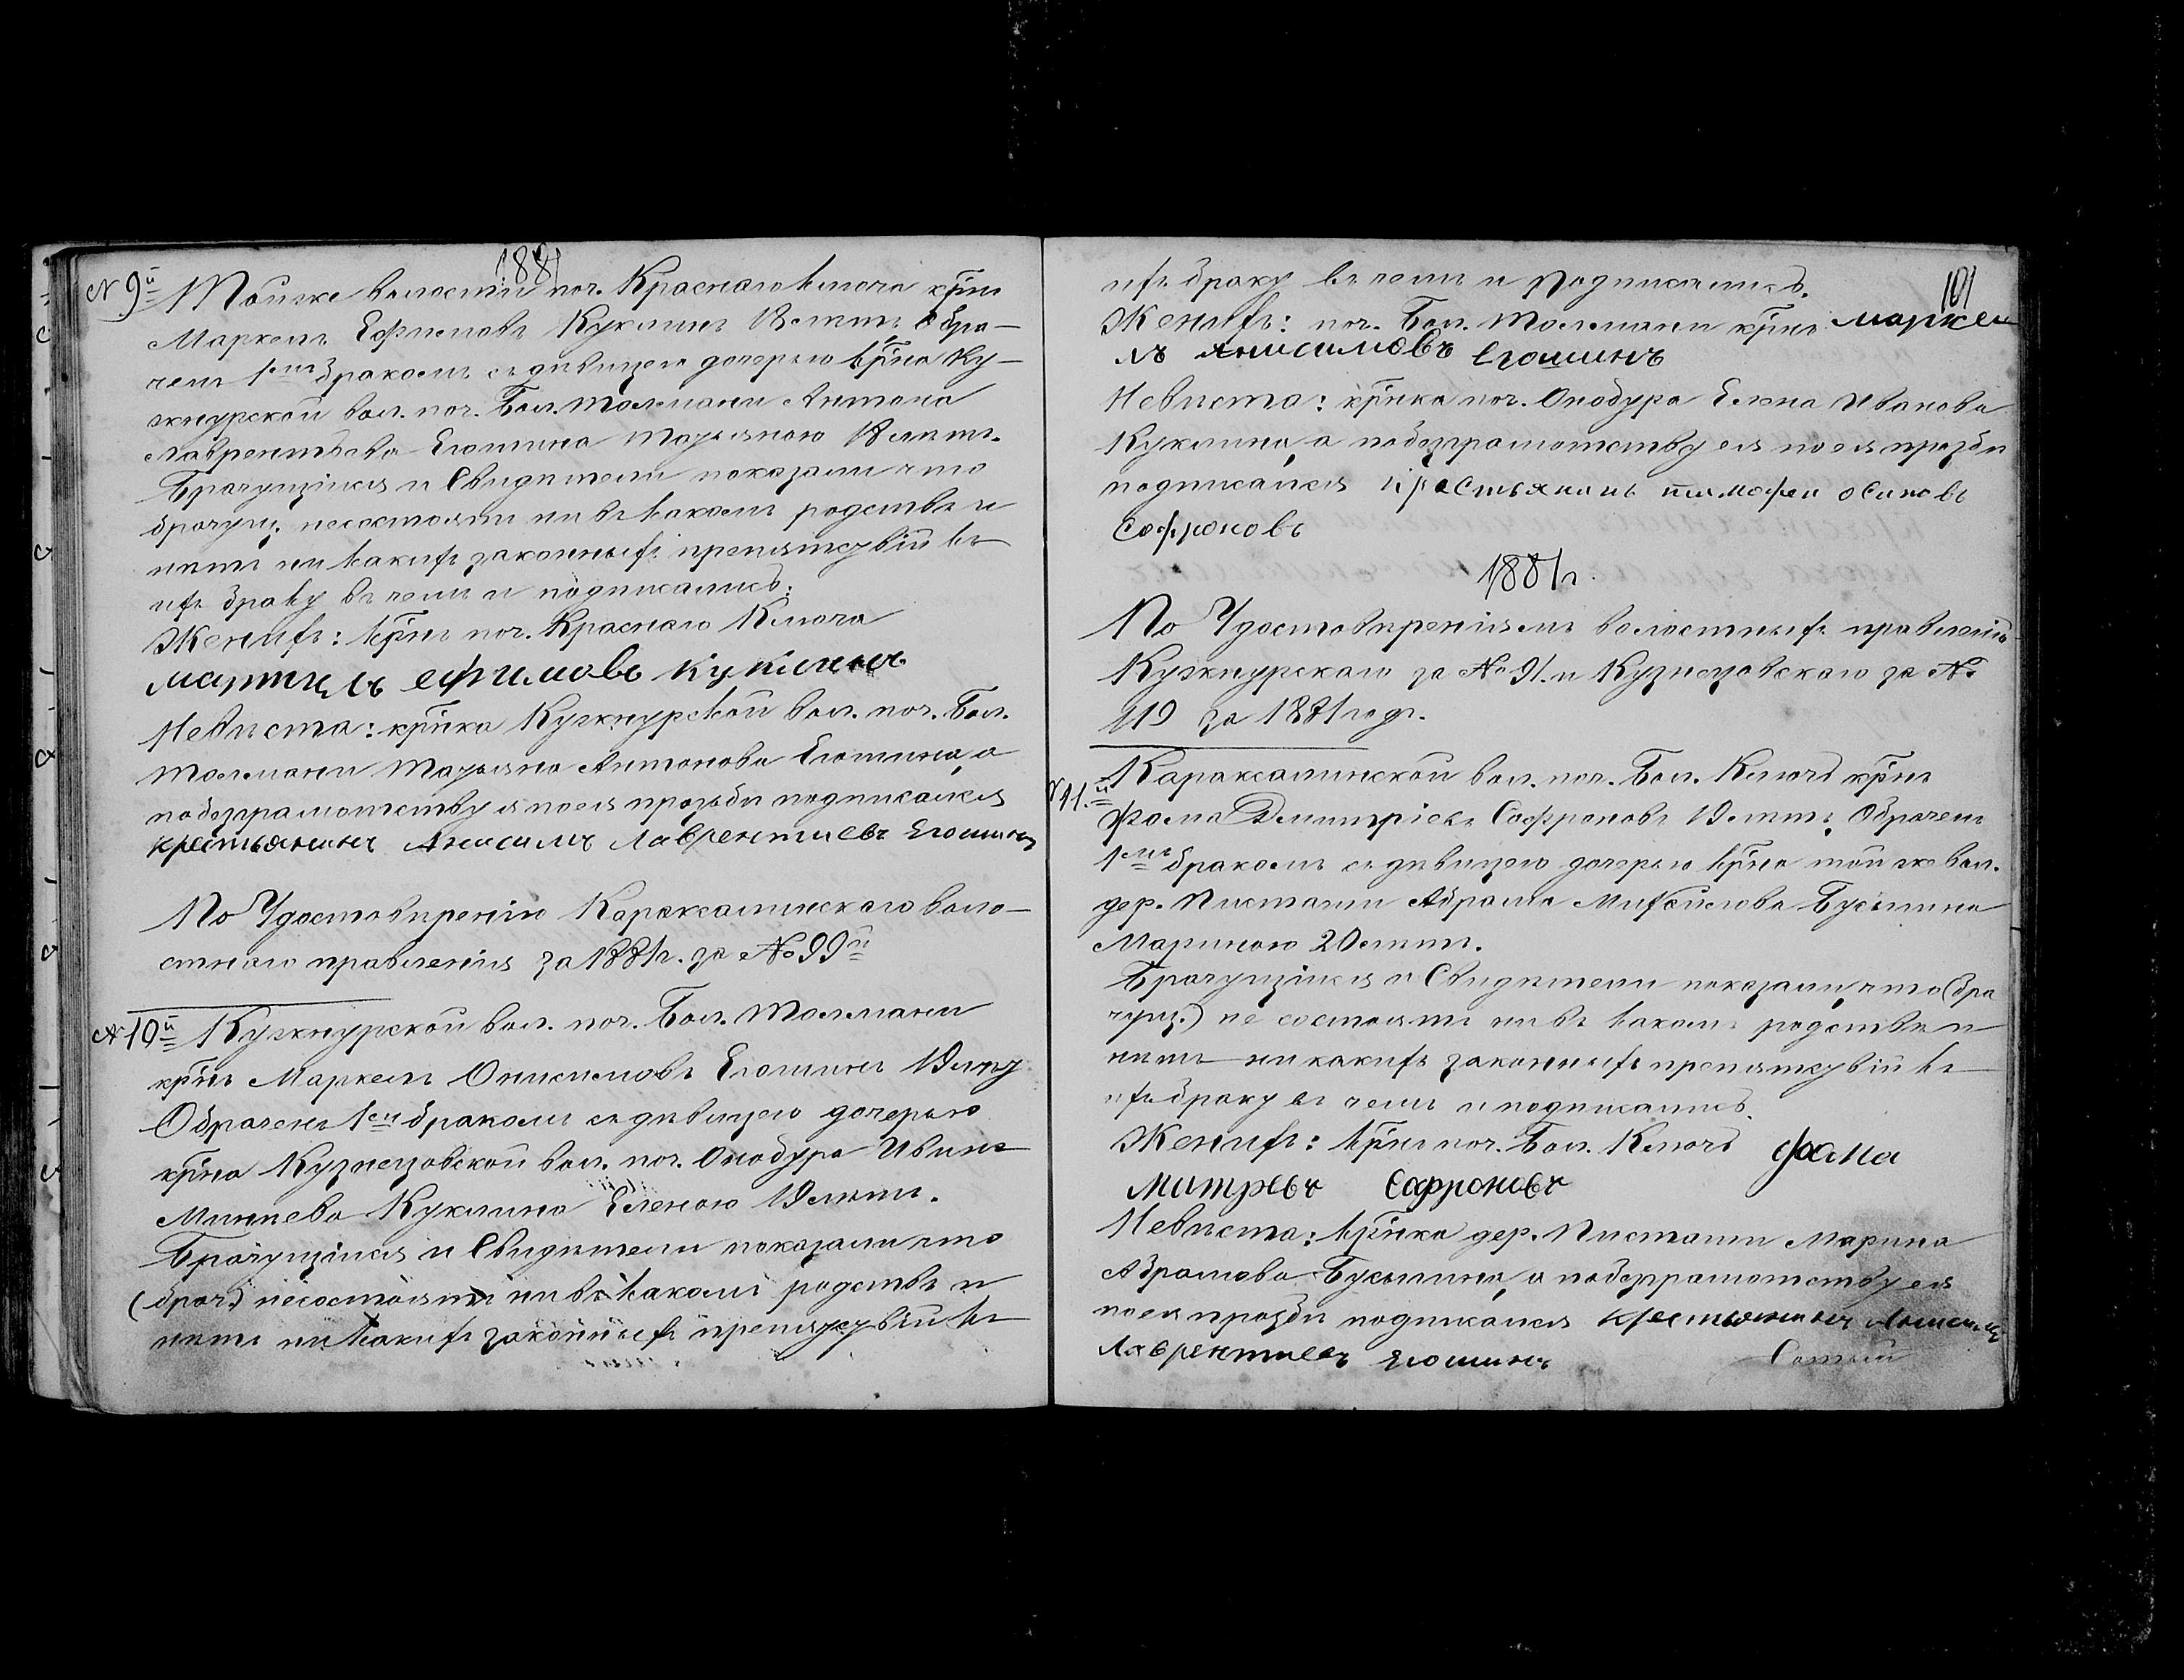 1881
№ 9й Той же волости поч. Краснаго Ключа крнъ
Маркелъ Ефимовъ Куклинъ 18 летъ, обра-
ченъ 1мъ бракомъ съ девицею дочерью крна Ку-
жнурской вол. поч. Бол. Толмани Антона
Лаврентьева Егошина Татьяною 18 летъ.
Брачущіися и Свидетели показали что
брачущ. несостоятъ ни въ какомъ родстве и
нетъ ни какихъ законныхъ препятсвій къ
ихъ браку въ чемъ и подписались:
Женихъ: крнъ поч. Краснаго Ключа
ефимовъ куклинъ
Невеста: крнка Кужнурской вол. поч. Бол.
Толмани Татьяна Антонова Егошина, а
по безграмотству ея по ея прозьбе подписался
крестьянинъ Анисимъ Лаврентиевъ Егошинъ
По Удостоверенію Караксалинскаго воло-
стнаго правленія за 1881 г. за № 99й
№ 10й Кужнурской вол. поч. Бол. Толмани
крнъ Маркелъ Онисимовъ Егошинъ 19 лету
Обраченъ 1мъ бракомъ съ девицею дочерью
крна Кузнецовской вол. поч. Ошабура Ивана
Куклина Еленою 19 летъ.
Брачущіися и Свидетели показали что
(брач.) несостоятъ ни въ какомъ родстве и
нетъ ни какихъ законныхъ препятсвій къ
101
ихъ браку въ чемъ и подписались.
Женихъ: поч. Бол. Толмани крнъ маркел
лъ анисимовъ егошинъ
Невеста: крнка поч. Ошабура Елена Иванова
Куклина, а по безграмотству ея по ея прозбе
подписался крестьянинъ тимофеи осиповъ
Софроновъ
1881 г.
По Удостовереніямъ волостныхъ правленій
Кужнурскаго за № 91. и Кузнецовскаго за №
119 за 1881 годъ.
№ 11.й Караксалинской вол. поч. Бол. Ключъ крнъ
Фома Дмитріевъ Софроновъ 19 летъ, Обраченъ
1мъ бракомъ съ девицею дочерью крна той же вол.
дер. Абрама Михайлова
Мариною 20 летъ.
Брачущіися и Свидетели показали, что (бра
чущ.) не состоятъ ни въ какомъ родстве и
нетъ ни какихъ законныхъ препятсвій къ
ихъ браку въ чемъ и подписались.
Женихъ: крнъ поч. Бол. Ключъ фома
Митревъ Сафроновъ
Невеста: крнка дер. Марина
Абрамова а по безграмотству ея
по ея прозбе подписался крестьянинъ Анисимъ
Лаврентиевъ егошинъ
Сотый